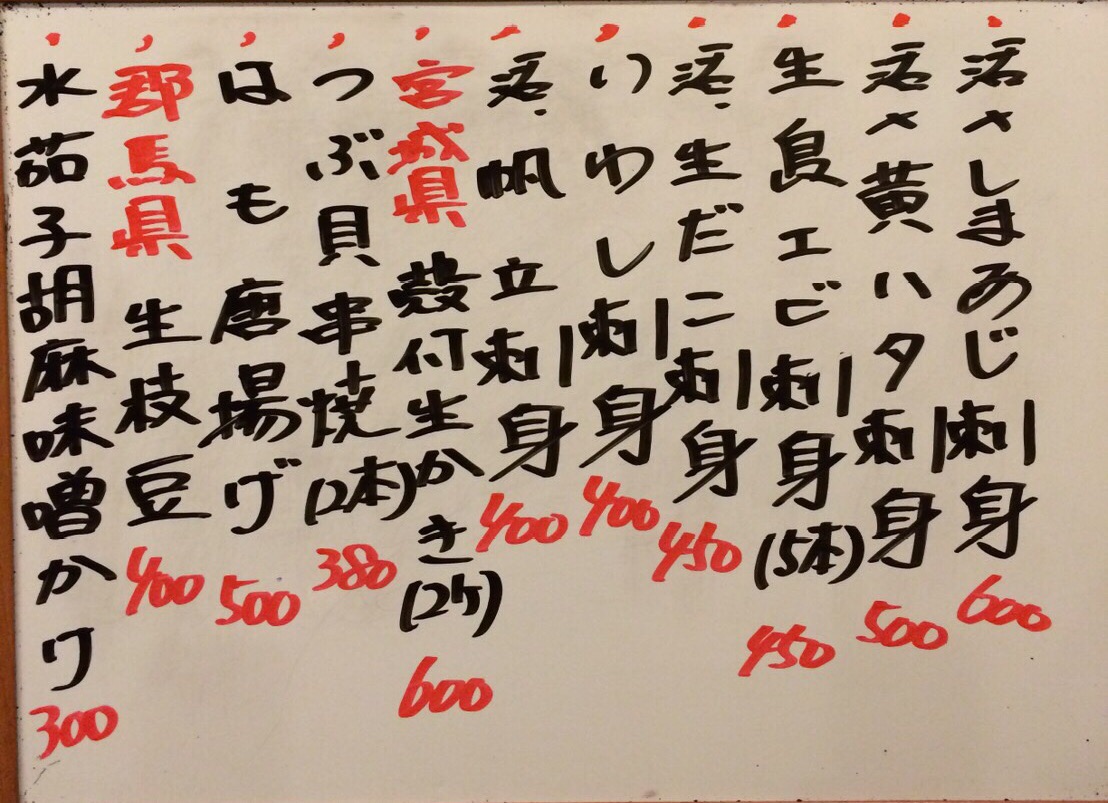 ・活〆しまあじ刺身 600
・活〆黄ハタ刺身 500
・生島エビ刺身(5本) 450
・活、生だこ刺身 450
・いわし刺身 400
・活、帆立刺身 400
・宮城県 殻付生かき(2ケ) 600
・つぶ貝串焼(2本) 380
・はも唐揚げ 500
・郡馬県 生枝豆 400
・水茄子胡麻味噌かけ 300